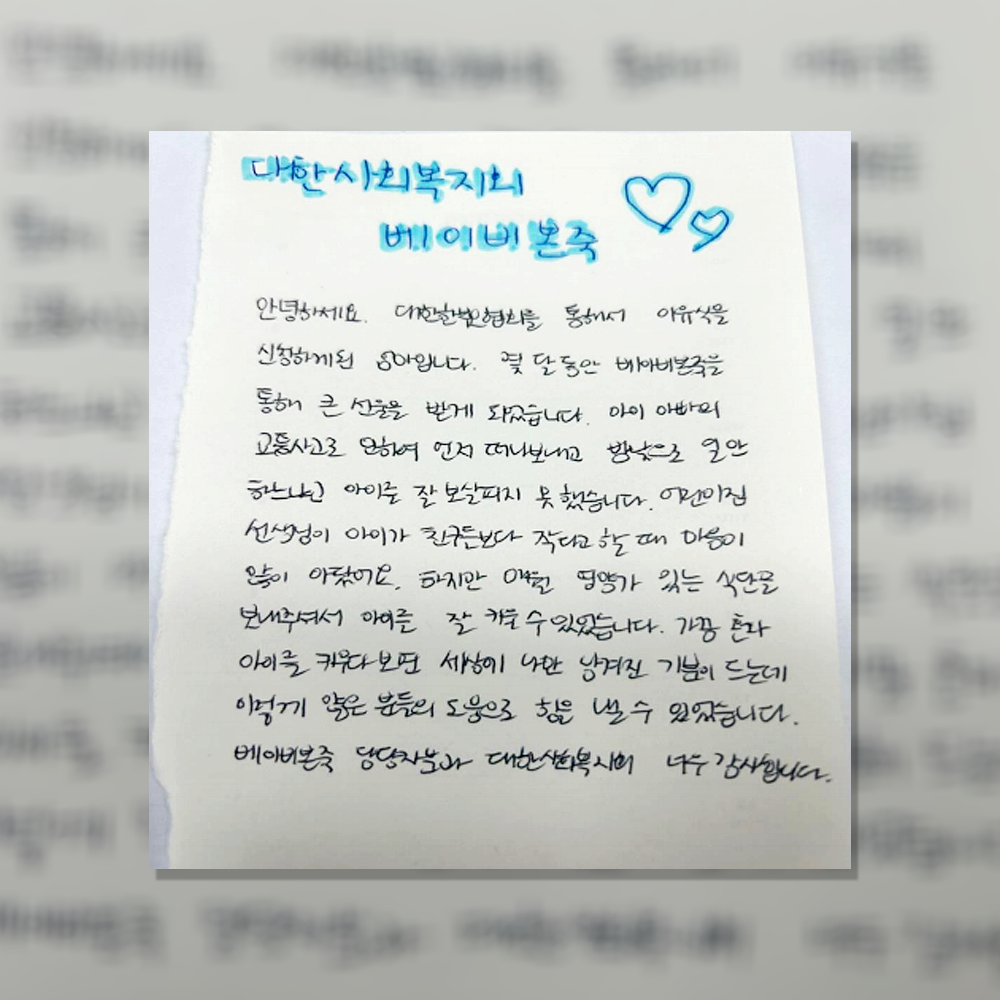 대한사회복지회
베이비본죽
안녕하세요. 대한한부모협회를 통해서 이유식을
신청하게된 엄마입니다. 몇 달 동안 베이비본죽을
통해 큰 선물을 받게 되었습니다. 아이 아빠의
교통사고로 인하여 먼저 떠나보내고 밤낮으로 일만
하느라고 아이를 잘 보살피지 못 했습니다. 어린이집
선생님이 아이가 친구들보다 작다고 할 때 마음이
많이 아팠어요. 하지만 매월 영양가 있는 식단을
보내주셔서 아이를 잘 키울 수 있었습니다. 가끔 혼자
아이를 키우다 보면 세상에 나만 남겨진 기분이 드는데
이렇게 많은 분들의 도움으로 힘을 낼 수 있었습니다.
베이비본죽 담당자분과 대한사회복지회 너무 감사합니다.